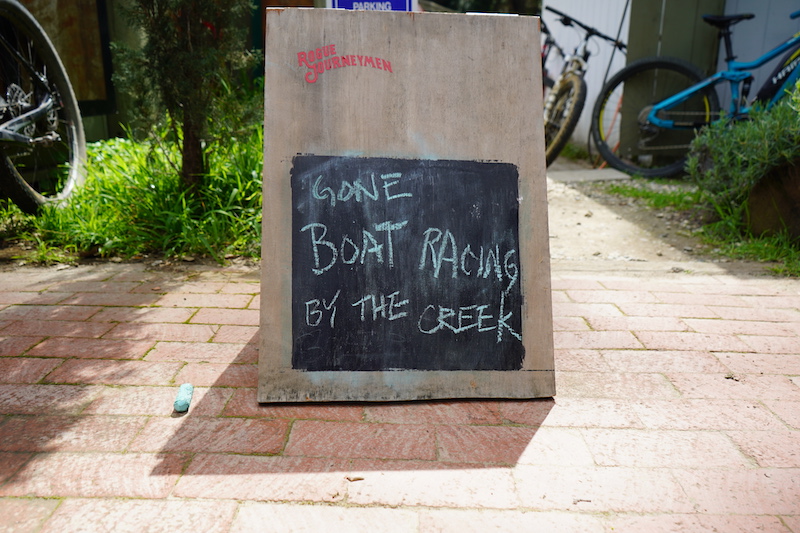 PARKING
ROGUE
JOURNEYMEN
GONE
BOAT RACING
BY THE CREEK